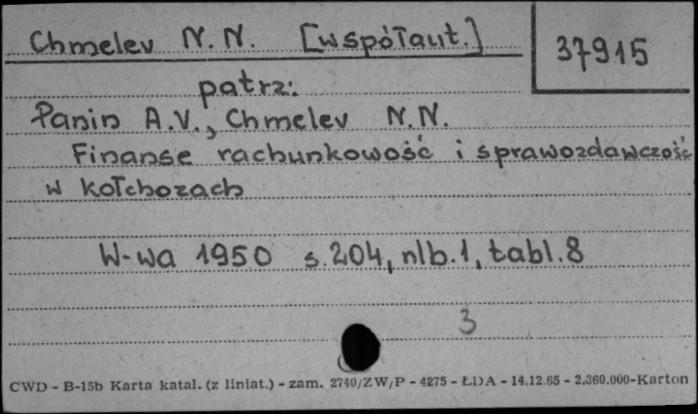 Chmelev N.N. [współaut.]
37915
patrz:
Panin A.V., Chmelev N.N.
Finanse rachunkowość i sprawozdawczość
w kołchozach
W-wa 1950 s.204, nlb.1, tabl.8
3
CWD - B-15b Karta katal. (z liniat.) - zam. 2740/ZW/P - 4275 - ŁDA - 14.12.65 - 2.360.000-Karton